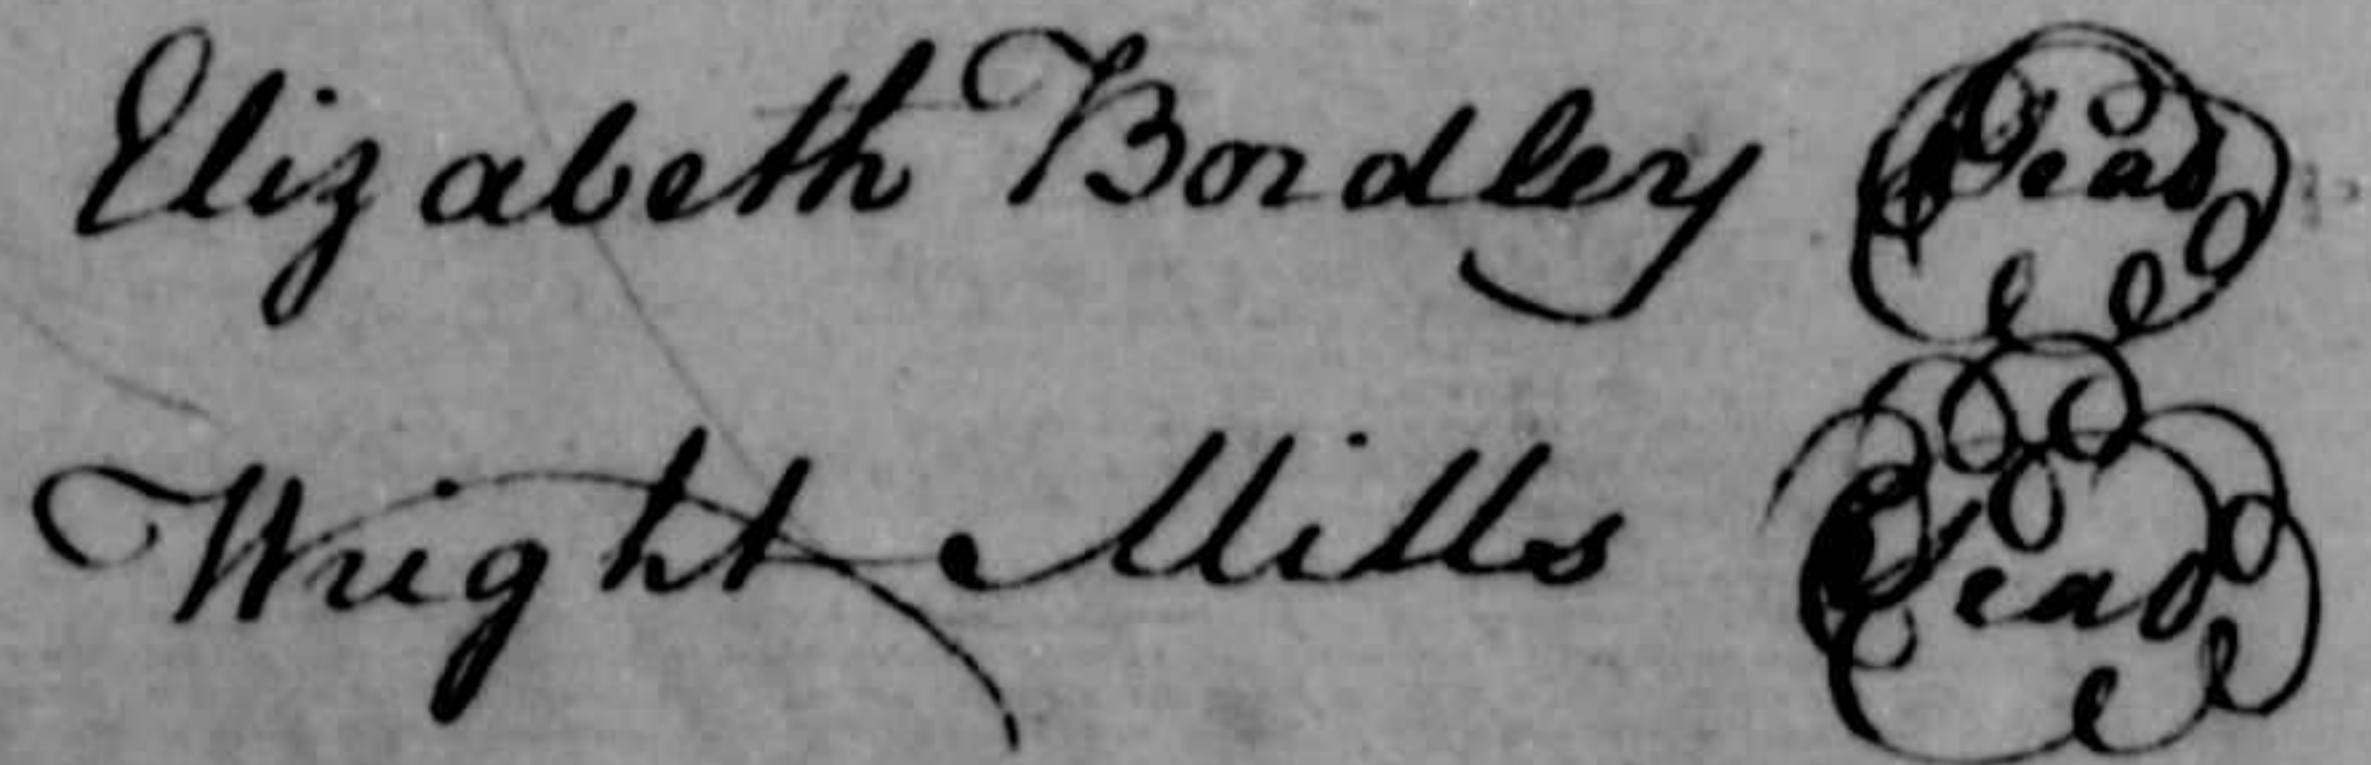 Elizabeth Bordley Seal
Wright Mills Seal